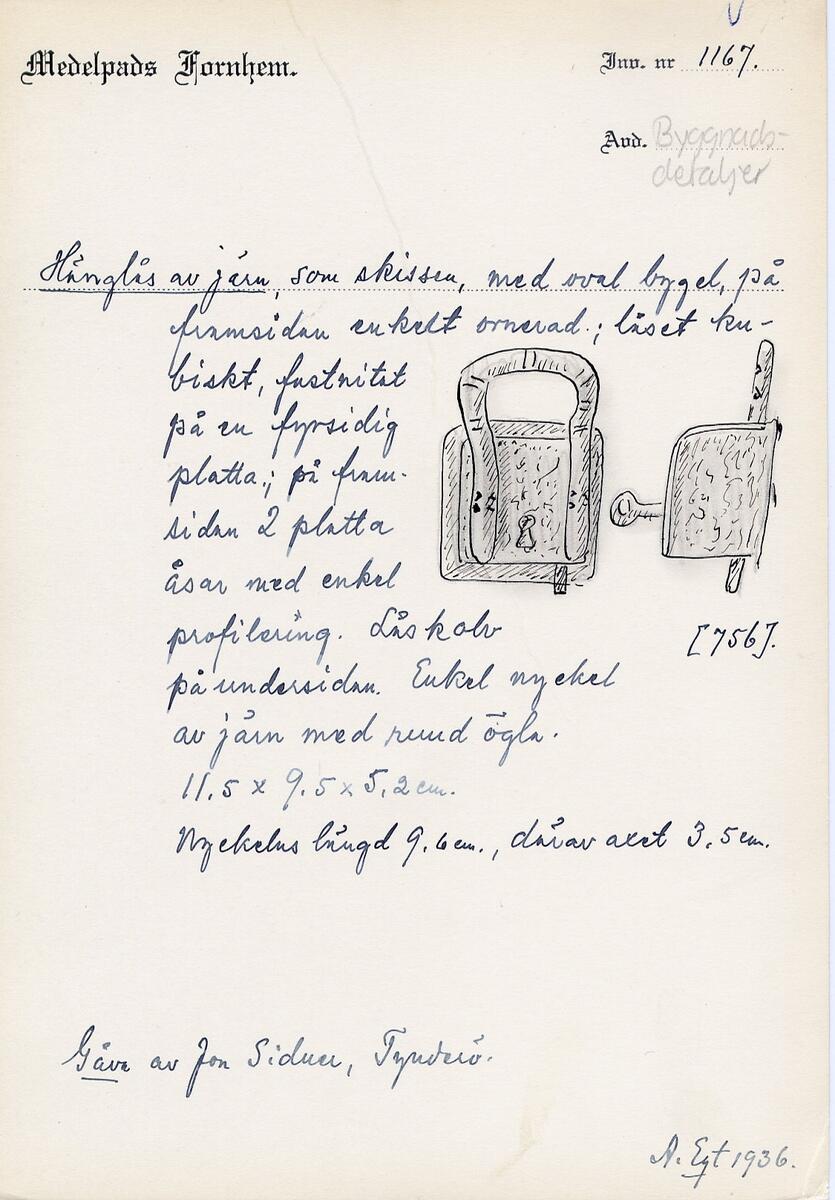 V
Medelpads Fornhem.
Inv. nr 1167.
Avd. Byggnads-
detaljer
Hänglås av järn, som skissen, med oval bygel, på
framsidan enkelt ornerad.; låset ku-
biskt, fastnitat
på en fyrsidig
platta.; på fram-
sidan 2 platta
åsar med enkel
profilering. Låskolv
[756].
på undersidan. Enkel nyckel
av järn med rund ögla.
11.5 x 9.5 x 5.2 cm.
Nyckelns längd 9.6 cm., därav axet 3.5 cm.
Gåva av Jon Sidner, Tynderö.
A. Egt 1936.